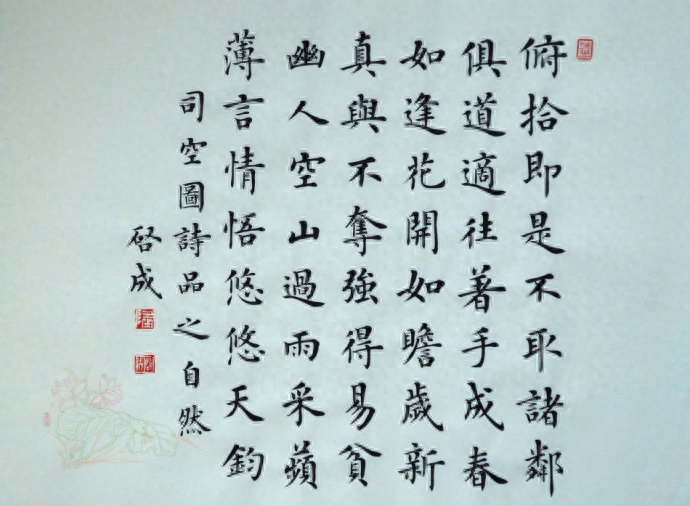 俯拾即是不取諸鄰
俱道適往著手成春
如逢花開如瞻歲新
真與不奪強得易貧
幽人空山過雨采蘋
薄言情悟悠悠天鈞
司空圖詩品之自然
啓成